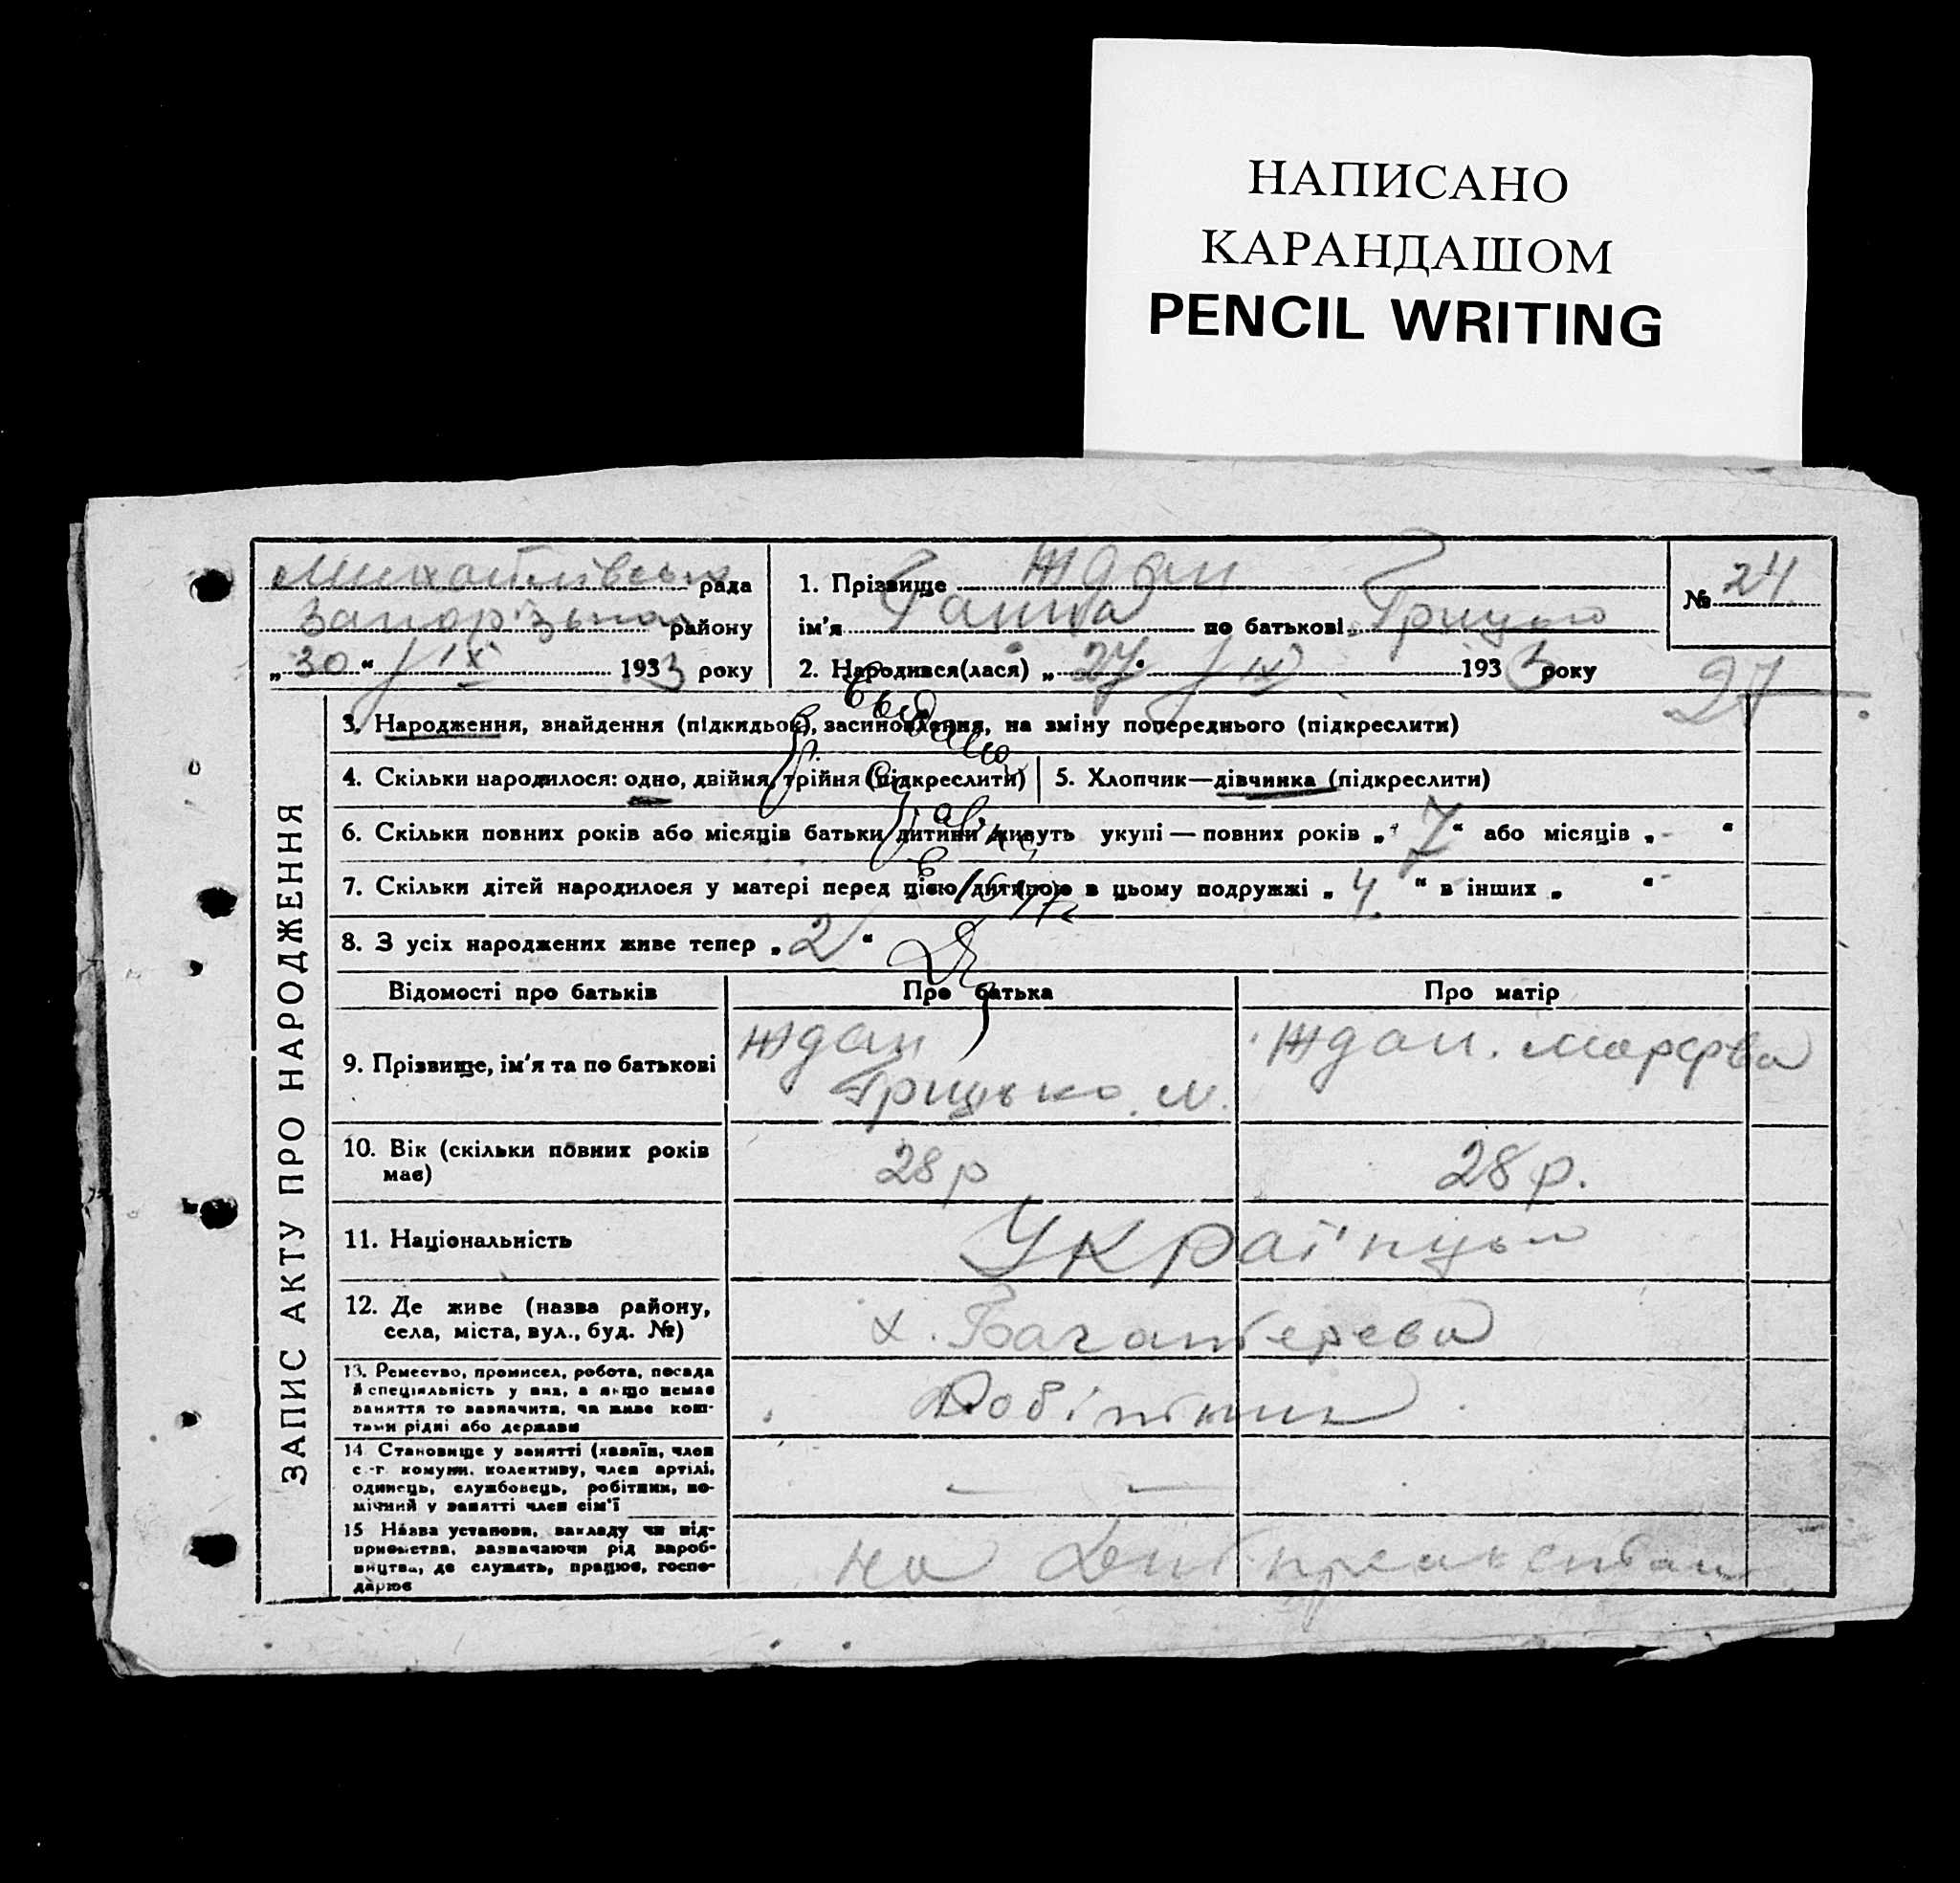 НАПИСАНО
КАРАНДАШОМ
PENCIL WRITING
Михайлівськ рада
Запорізького району
„30“ / IX 1933 року
1. Прізвище Ждан
ім'я Ганна по батькові Грицько
2. Народився(лася) „27“ / IX 1933 року
№ 24
27
ЗАПИС АКТУ ПРО НАРОДЖЕННЯ
3. Народження, знайдення (підкидьок), засиновлення, на зміну попереднього (підкреслити)
4. Скільки народилося: одно, двійня, трійня (підкреслити)
5. Хлопчик—дівчинка (підкреслити)
6. Скільки повних років або місяців батьки дитини живуть укупі — повних років „7“ або місяців „-“
7. Скільки дітей народилося у матері перед цією дитиною в цьому подружжі „4.“ в інших „-“
8. З усіх народжених живе тепер „2“
Відомості про батьків
Про батька
Про матір
9. Прізвище, ім'я та по батькові
Ждан
Грицько. М.
Ждан. Марфва
10. Вік (скільки повних років
має)
28 р
28 р.
11. Національність
Українці
12. Де живе (назва району,
села, міста, вул., буд. №)
х.
13. Ремество, промисел, робота, посада
й спеціяльність у них, а якщо немає
заняття то зазначити, чи живе кош-
тами рідні або держави
Робітник
14. Становище у занятті (хазяїн, член
с.-г. комуни, колективу, член артілі,
одинець, службовець, робітник, по-
мічний у занятті член сім'ї
— —
15 Назва установи, закладу чи під-
приємства, зазначаючи рід вироб-
ництва, де служить, працює, госпо-
дарює
на